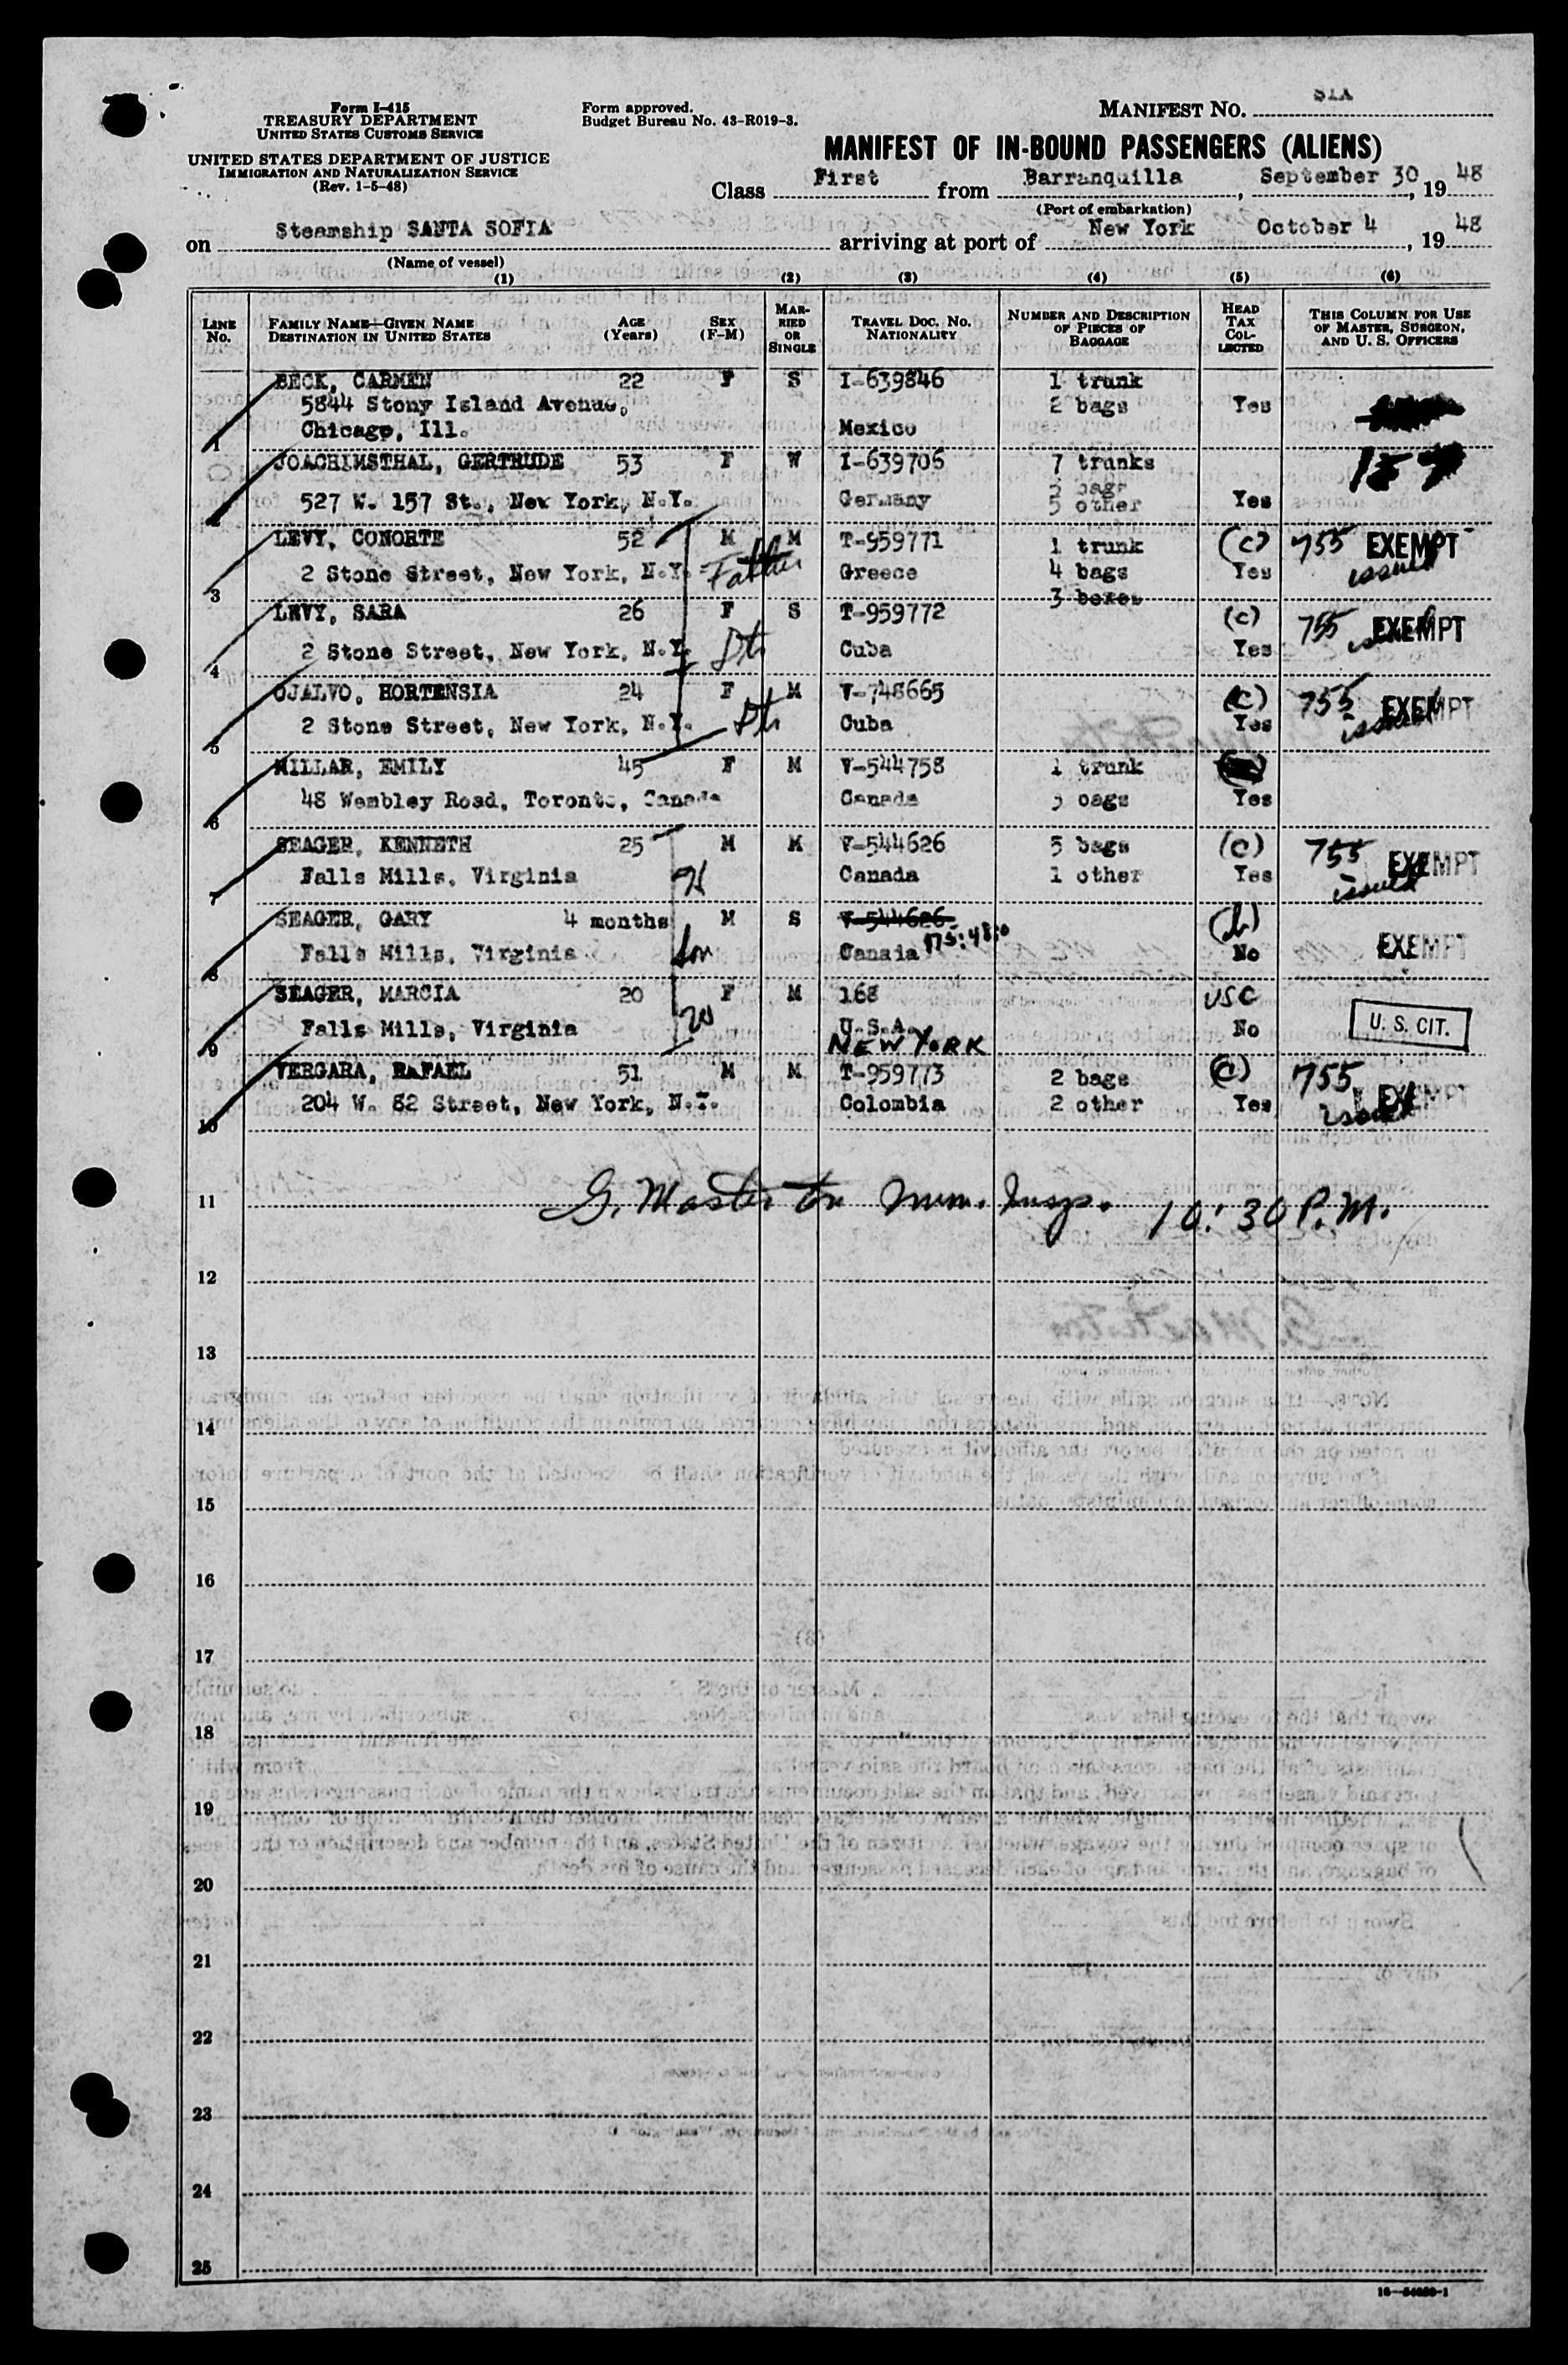 Form I-415
TREASURY DEPARTMENT
UNITED STATES CUSTOMS SERVICE
UNITED STATES DEPARTMENT OF JUSTICE
IMMIGRATION AND NATURALIZATION SERVICE
(Rev. 1-5-48)
Form approved.
Budget Bureau No. 43-R019-3.
MANIFEST NO. SIX
MANIFEST OF IN-BOUND PASSENGERS (ALIENS)
Class First from Barranquilla, September 30, 19 48
(Port of embarkation)
on Steamship SANTA SOFIA arriving at port of New York October 4, 19 48
(Name of vessel)
(1) (2) (3) (4) (5) (6)
LINE No. FAMILY NAME—GIVEN NAME DESTINATION IN UNITED STATES AGE (Years) SEX (F-M) MARRIED OR SINGLE TRAVEL DOC. NO. NATIONALITY NUMBER AND DESCRIPTION OF PIECES OF BAGGAGE HEAD TAX COLLECTED THIS COLUMN FOR USE OF MASTER, SURGEON, AND U. S. OFFICERS
BECK, CARMEN 22 F S I-639846 1 trunk
5844 Stony Island Avenue, 2 bags Yes
1 Chicago, Ill. Mexico
JOACHIMSTHAL, GERTRUDE 53 F W I-639706 7 trunks
3 bags
2 527 W. 157 St., New York, N.Y. Germany 5 other Yes
LEVY, CONORTE 52 M M T-959771 1 trunk (c) 755 EXEMPT
2 Stone Street, New York, N.Y. Father Greece 4 bags Yes issued
3 3 boxes
LEVY, SARA 26 F S T-959772 (c) 755 issued EXEMPT
4 2 Stone Street, New York, N.Y. Dtr Cuba Yes
OJALVO, HORTENSIA 24 F M V-748665 (c) 755 EXEMPT
5 2 Stone Street, New York, N.Y. Dtr Cuba Yes issued
MILLAR, EMILY 45 F M V-544758 1 trunk
6 48 Wembley Road, Toronto, Canada Canada 3 bags Yes
SEAGER, KENNETH 25 M M V-544626 5 bags (c) 755 EXEMPT
7 Falls Mills, Virginia H Canada 1 other Yes issued
SEAGER, GARY 4 months M S V-544626 (b)
8 Falls Mills, Virginia Son Canada No EXEMPT
SEAGER, MARCIA 20 F M 168 USC
9 Falls Mills, Virginia W U.S.A. No U. S. CIT.
NEW YORK
VERGARA, RAFAEL 51 M M T-959773 2 bags (c) 755
10 204 W. 82 Street, New York, N.Y. Colombia 2 other Yes issued EXEMPT
11 G. Masterton Imm. Insp. 10:30 P.M.
12
13
14
15
16
17
18
19
20
21
22
23
24
25